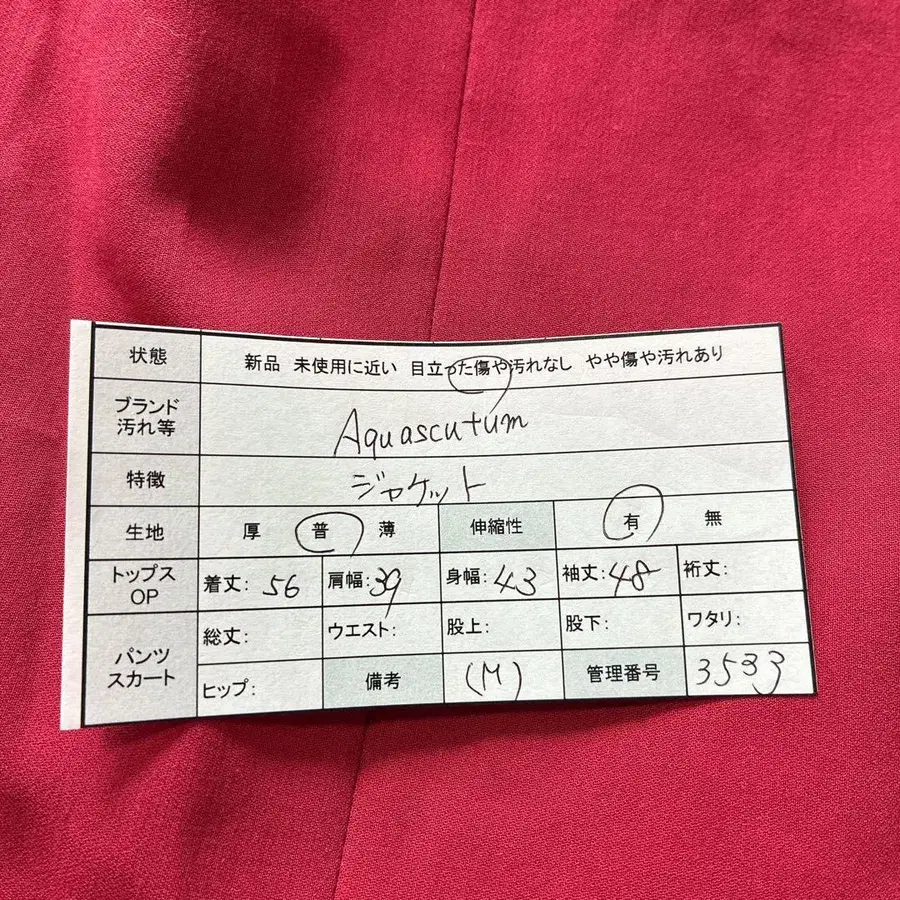 状態 新品 未使用に近い 目立った傷や汚れなし やや傷や汚れあり
ブランド
汚れ等
Aquascutum
特徴 ジャケット
生地 厚 普 薄 伸縮性 有 無
トップス
OP
着丈: 56 肩幅: 39 身幅: 43 袖丈: 48 裄丈:
パンツ
スカート
総丈: ウエスト: 股上: 股下: ワタリ:
ヒップ: 備考 (M) 管理番号 3533